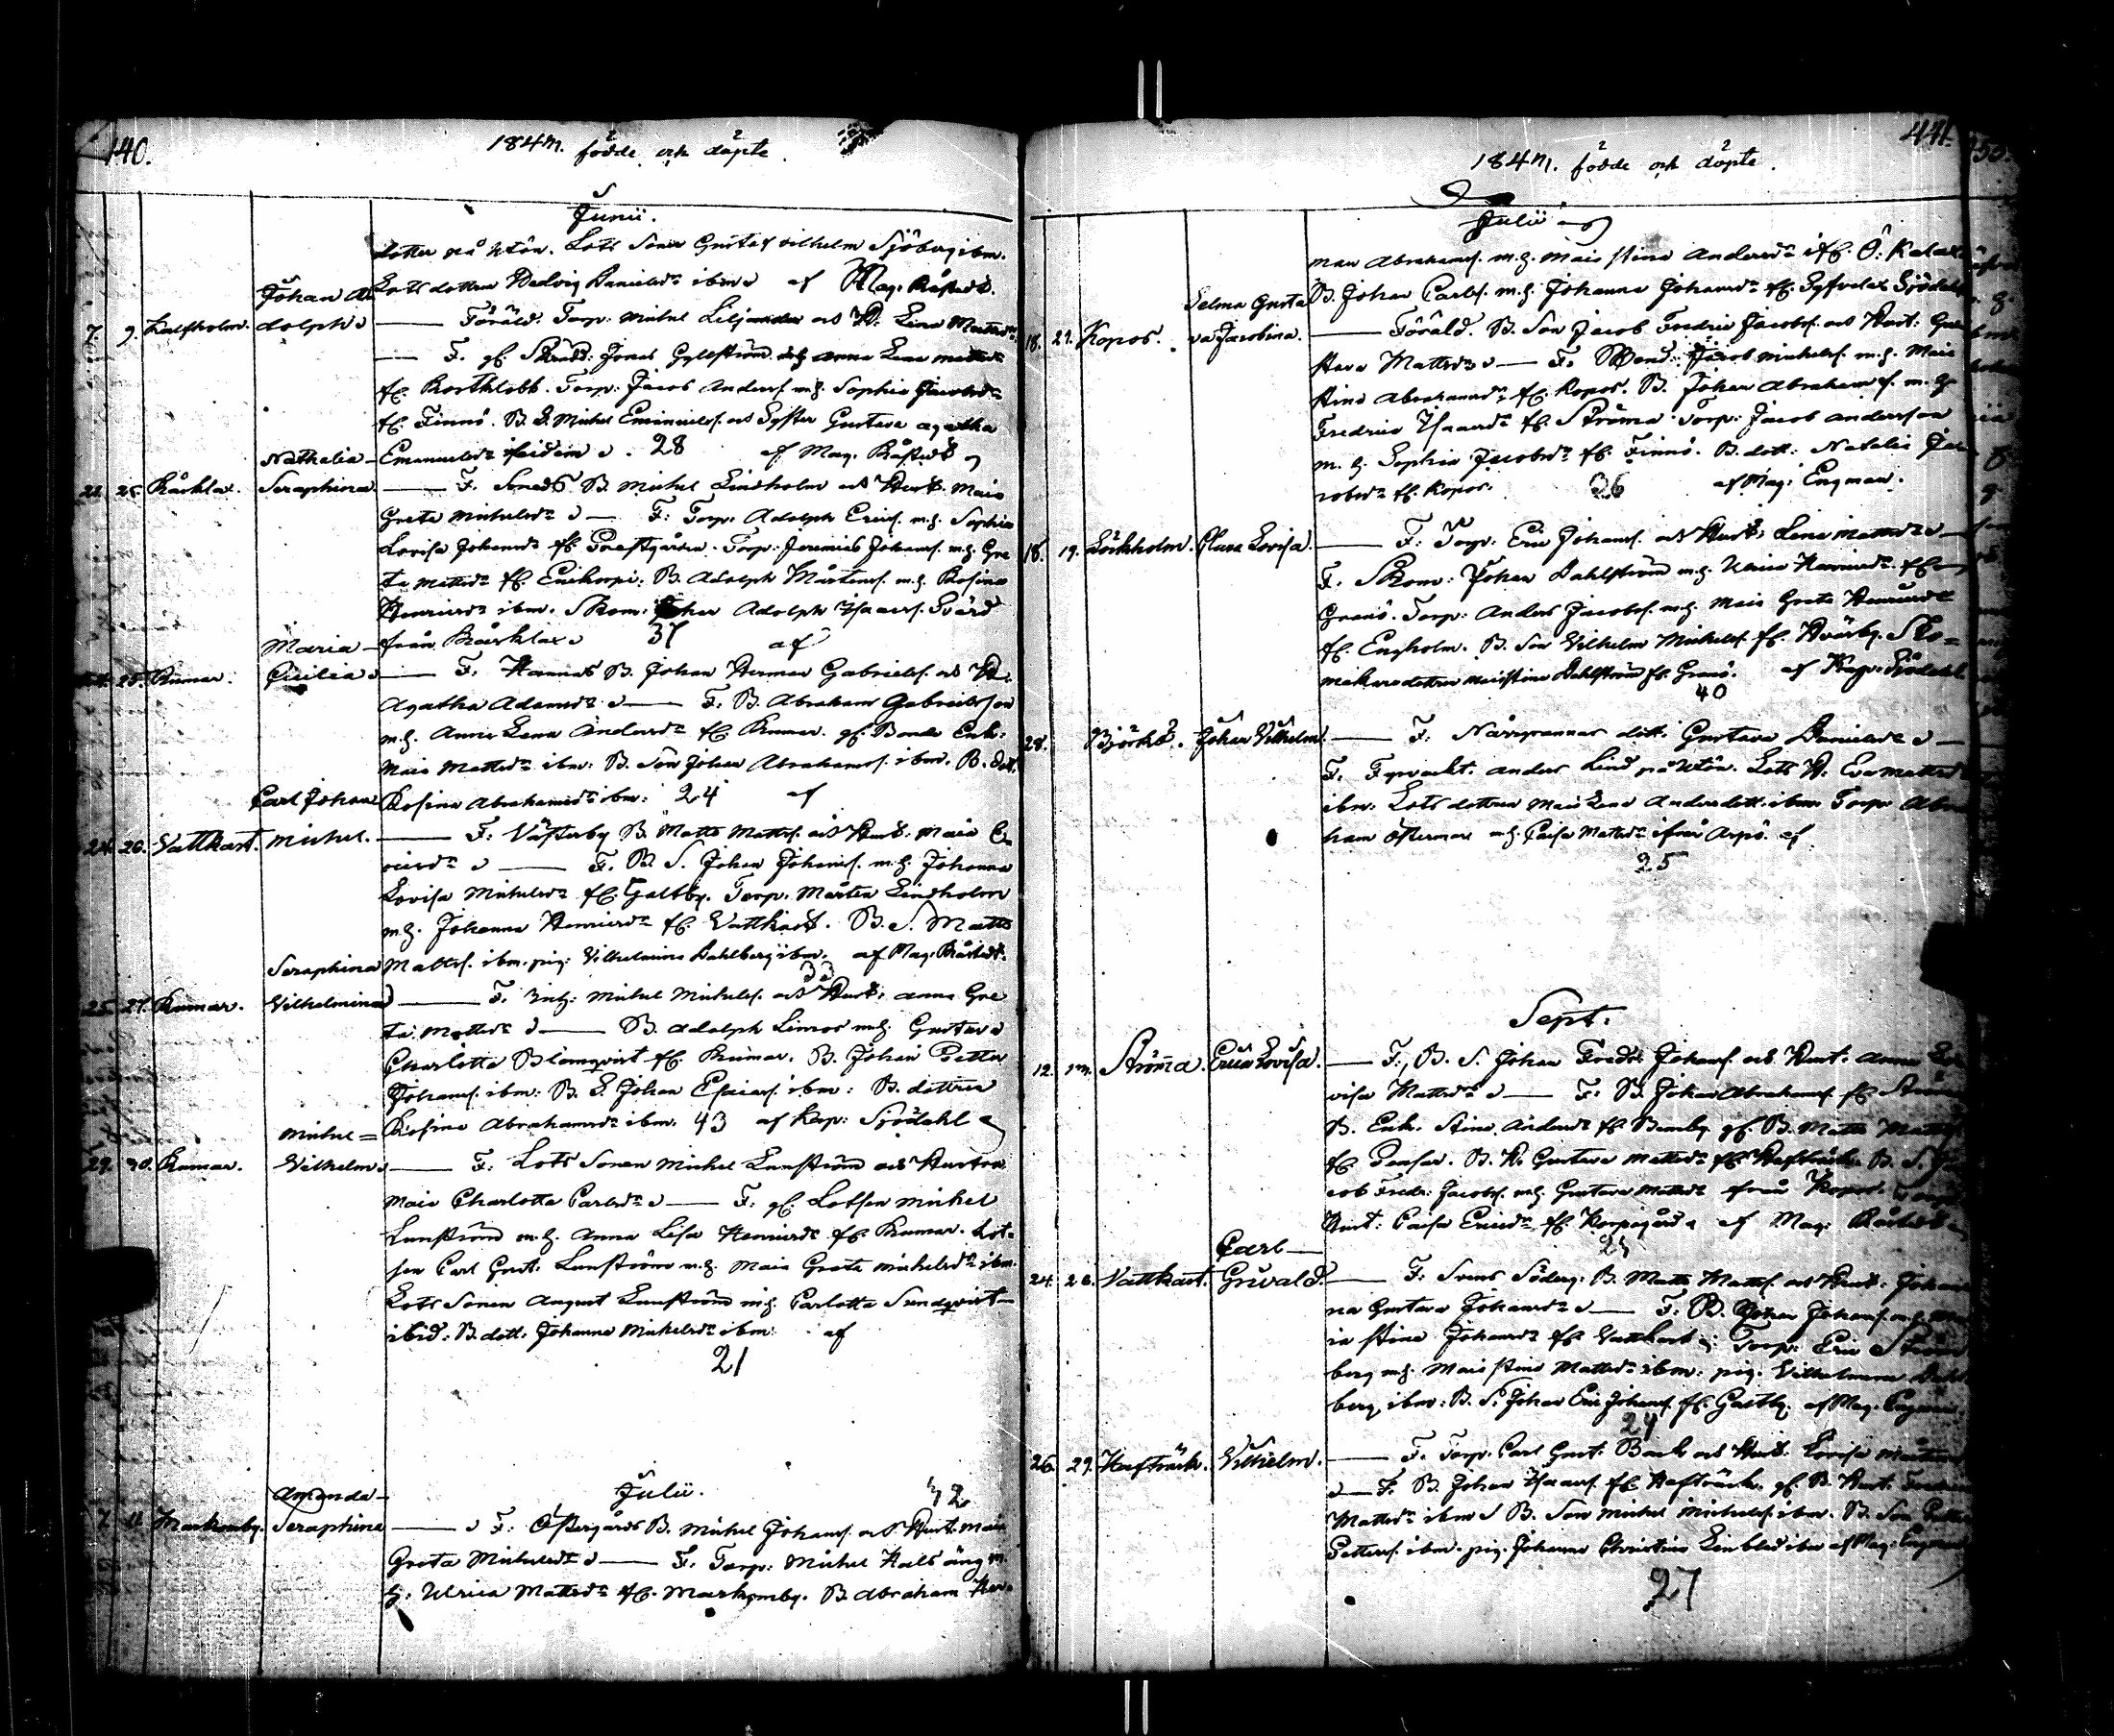 140.
184 födde och döpte
Junii.
dotter på Utön. Lots Sonen Gustaf Vilhelm Sjöberg ibm.
Johan A Lots dottren Hedvig Danielsdr ibm af Mag. Råstedt.
7. 9. Kalfholm. dolph Föräld. Torp: Michel och H. Lena Mattsdr
F. gf. Jonas Gyllström Anna Lena
fr. Korsklobb. Torp: Jacob Anders. m.h. Sophia Jacobsdr
fr. Finnö. B. S. Michel Emanuels. och Syster Gustava Agatha
Nathalia Emanuelsdr ibidem 28 af Mag. Råstedt
25. Kårklax. Seraphina F. B. Michel Lindholm och Hust. Maia
Greta Michelsdr F: Torp: Adolph Erics. m.h. Sophia
Lovisa Johansdr fr. Prestgården. Torp: Jeremias Johans. m.h. Gre
ta Mattsdr fr. B. Adolph Mårtens. m.h. Rosina
Henricsdr ibm. Skom: Johan Adolph Isaacs. Svärd
Maria från Kårklax 37 af
25. Rumar. Cicilia F. Hannas B. Johan Herman Gabriels. och H.
Agatha Adamsdr F. B. Abraham Gabrielsson
m.h. Anna Lena Andersdr fr Rumar. gf. Bonde Enk:
Maia Mattsdr ibm: B. Son Johan Abrahams. ibm. B. dott.
Carl Johan Rosina Abrahamsdr ibm: 24 af
24. 26. Vattkast. Michel. F: Västerby B. Matts Matts. och Hust. Maia E
ricsdr F. B. S. Johan Johans. m.h. Johanna
Lovisa Michelsdr fr. Galtby. Torp: Mårten Lindholm
m.h. Johanna Henricsdr fr. Vattkast. B. S. Matts
Seraphina Matts. ibm. pig: Vilhelmina Dahlberg ibm. af Mag. Råstedt.
33
25. 27. Rumar. Vilhelmina F. Inh: Michel Michels. och Hust: Anna Gre
ta Mattsdr B. Adolph m.h. Gustava
Charlotta Blomqvist fr. Rumar. B. Johan Petter
Johans. ibm: B. S. Johan Esaias. ibm: B. dottren
Michel = Rosina Abrahamsdr ibm. 43 af Kap: Sjödahl
29. 30. Rumar. Vilhelm F: Lots Sonen Michel Lunström och Hustru
Maia Charlotta Carlsdr F: gf. Lotsen Michel
Lunström m.h. Anna Lisa Henricsdr fr. Rumar. Lot-
sen Carl Gust. Lunström m.h. Maia Greta Michelsdr ibm.
Lots Sonen August Lunström m.h. Carlotta Sundqvist
ibid. B. dott. Johanna Michelsdr ibm: af
21
Julii. 42
Amanda
7. Markomby. Seraphina F: Östergårds B. Michel Johans. och Hust. Maia
Greta Michelsdr F. Torp: Michel Kalläng m.
h. Ulrica Mattsdr fr. Markomby. B. Abraham Her-
441.
184 födde och döpte.
Julii
man Abrahams. m.h. Maia Stina Andersdr fr. Ö: Kalax
Selma Gusta B. Johan Carls. m.h. Johanna Johansdr fr. Syfvelax Sjödahl
18. 21. Kopos. va Jacobina. Föräld. B. Son Jacob Fredric Jacobs. och Hust: Gus
stava Mattsdr F. Jacob Michels. m.h. Maia
Stina Abrahamsdr fr. Kopos. B. Johan Abrahams. m.h.
Fredrica Isaacsdr fr. Ströma. Torp: Jacob Andersson
m.h. Sophia Jacobsdr fr. Finnö. B. dott: Natalia Ja
cobsdr fr. Kopos. 26 af Mag: Engman.
18. 19. Löckholm. Clara Lovisa. F: Torp: Eric Johans. och Hust: Lena Mattsdr
F. Skom: Johan Dahlström m.h. Ulrica Henricsdr fr
Granö. Torp: Anders Jacobs. m.h. Maia Greta Henricsdr
fr. Engholm. B. Son Vilhelm Michels. fr. Hvarby. Sko-
makaredottren Maia Stina Dahlström fr. Granö. af Kap: Sjödahl
40
28. Björkö. Johan Vilhelm. F. dott. Gustava Danielsdr
F. Fyrvackt. Anders Lind på Utön. Lots H. Eva Mattsdr
ibm: Lots dottren Maia Lena Andersdott. ibm Torp: Abra
ham Östermans m.h. Caisa Mattsdr ifrån Aspö. af
25
Sept.
12. Ströma. Erica Lovisa. F: B. S. Johan Fredr. Johans. och Hust. Anna Lo
visa Mattsdr F: B. Johan Abrahams. fr. Ströma
B. Enk. Stina Andersdr fr Benby gf. B. Matts Matts
fr. Pensar. B. H. Gustava Mattsdr fr. Hafträsk. B. S. Ja
cob Fredr. Jacobs. m.h. Gustava Mattsdr ifrån Kopos. Torp:
Hust: Caisa Ericsdr fr. Korpogård af Mag: Råstedt
25
Carl
24. 26. Vattkast. Grivald. F. Svens Söderg. B. Matts Matts. och Hust. Johan
na Gustava Johansdr F: B. Johan Johans. m.h. Ma
ia Stina Johansdr fr. Vattkast Torp: Eric Ström
berg m.h. Maia Stina Mattsdr ibm: pig. Vilhelmina Dahl
berg, ibm: B. S. Johan Eric Johans. fr. Galtby. af Mag. Engman.
24
26. 29. Hafträsk. Vilhelm. F. Torp. Carl Gust. Back och Hust. Lovisa Mårtensdr
F. B. Johan Isaacs. fr. Hafträsk. gf. B. Hust. Fredrica
Mattsdr ibm B. Son Michel Michels. ibm. B. Son Petter
Petters. ibm. pig. Johanna Christina Lenblad ibm af Mag. Engman
27